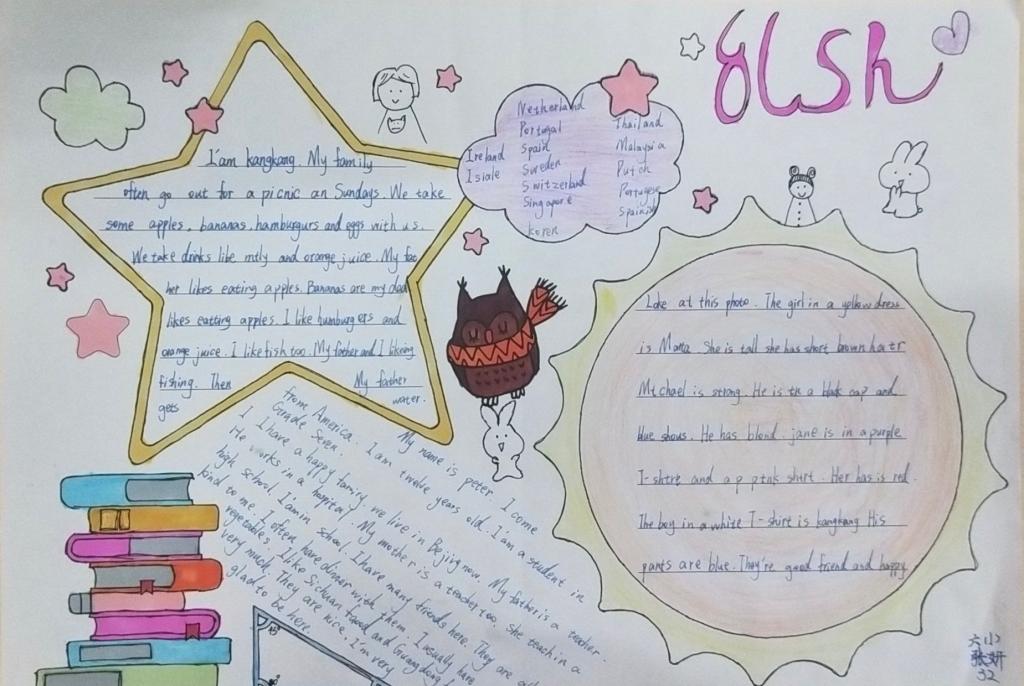 OLSh
I'am kangkang. My family
often go out for a picnic an Sundays. We take
some apples, bananas, hamburgurs and eggs with us.
We take drinks like mtly and orange juice. My fat
her likes eating apples. Bananas are my dad
likes eatting apples. I like humburgers and
orange juice. I like fish too. My father and I likeing
fishing. Then My father
gets water.
Netherland
Portugal
Spaid
Sweden
Switzerland
Singapore
koren
Ireland
Isiale
Thailand
Malaysia
Putch
Portugese
Spainish
My name is peter. I come
from America. I am twelve years old. I am a student in
Grade Seven.
I have a happy family. we live in Beijing now. My father is a teacher.
He works in a hospital. My mother is a teacher too. She teach in a
high school. I'amin school. I have many friends here. They are
kind to me. I often have dinner with them. I usually have
vegetables. I like Sichuan Food and Guangdong
very much. They are nice. I'm very
glad to be here.
Loke at this photo. The girl in a yellow dress
is Maria. She is tall she has short brown hatr
Mtchael is strong. He is tn a blak cap and
blue shous. He has blond. jane is in a purple
T-shtrt and a p ptnk shirt. Her has is red.
The boy in a white T-shirt is kangkang His
pants are blue. They're good friend and happy.
45
六小
张妍
32